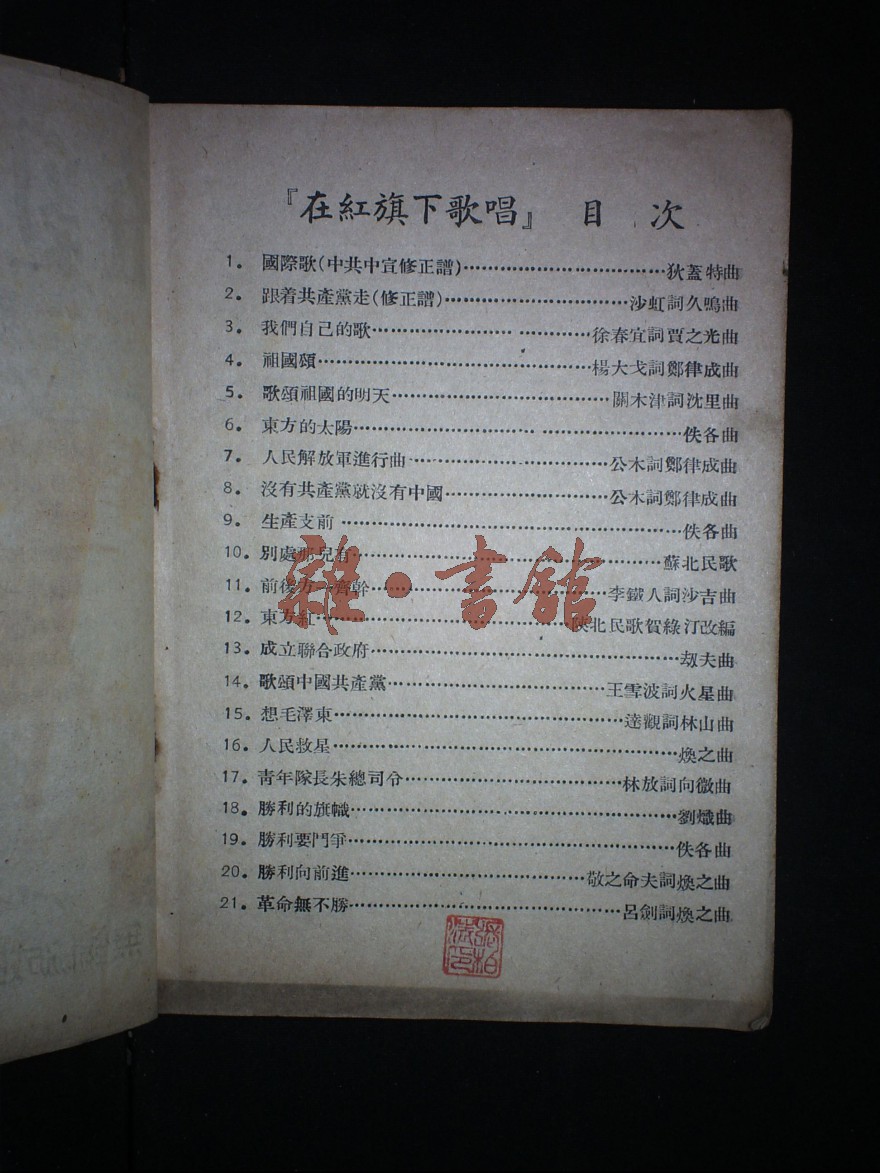 『在紅旗下歌唱』 目 次
1. 國際歌(中共中宣修正譜)……狄蓋特曲
2. 跟着共產黨走(修正譜)……沙虹詞久鳴曲
3. 我們自己的歌……徐春宜詞賈之光曲
4. 祖國頌……楊大戈詞鄭律成曲
5. 歌頌祖國的明天……關木津詞沈里曲
6. 東方的太陽……佚各曲
7. 人民解放軍進行曲……公木詞鄭律成曲
8. 沒有共產黨就沒有中國……公木詞鄭律成曲
9. 生產支前……佚各曲
10. 別處那兒有……蘇北民歌
11. 前後方一齊幹……李鐵人詞沙吉曲
12. 東方紅……陝北民歌賀綠汀改編
13. 成立聯合政府……劫夫曲
14. 歌頌中國共產黨……王雪波詞火星曲
15. 想毛澤東……達觀詞林山曲
16. 人民救星……煥之曲
17. 青年隊長朱總司令……林放詞向微曲
18. 勝利的旗幟……劉熾曲
19. 勝利要鬥爭……佚各曲
20. 勝利向前進……敬之命夫詞煥之曲
21. 革命無不勝……呂劍詞煥之曲
雜·書館